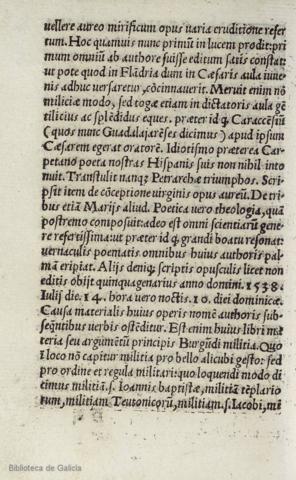 vellere aureo mirificum opus varia eruditione refer
tum. Hoc quanuis nunc primũ in lucem prodit: pri
mum omniũ ab authore fuisse editum satis constat:
ut pote quod in Flãdria dum in Cæsaris aula iuue
nis adhuc versaretur, cõcinnauerit. Meruit enim nõ
miliciæ modo, sed togæ etiam in dictatoris aula gẽ
tilicius ac splẽdidus eques. præter id ꝙ Caraccẽsiũ
( quos nunc Guadalajarẽses dicimus ) apud ipsum
Cæsarem egerat oratorẽ. Idiotismo præterea Car
petano poeta nostras Hispanis suis non nihil into
nuit. Transtulit nanqꝫ Petrarchæ triumphos. Scri
psit item de cõceptione virginis opus aureũ. De tri
bus etiã Marijs aliud. Poetica vero theologia, quã
postremo composuit: adeo est omni scientiarũ gene
re refertissima: ut præter id ꝙ grandi boatu resonat:
vernaculis poematis omnibus huius authoris pal
mã eripiat. Alijs deniqꝫ scriptis opusculis licet non
editis obijt quinquagenarius anno domini. 1538.
Iulij die. 14. hora vero noctis. 10. diei dominicæ.
Causa materialis huius operis nomẽ authoris sub-
seqẽntibus verbis ostẽditur. Est enim huius libri ma
teria seu argumẽtũ principis Burgũdi militia. Quo
I loco nõ capitur militia pro bello alicubi gesto: sed
pro ordine et regula militari: quo loquendi modo di
cimus militiã .s. Ioannis baptistæ, militiã tẽplario
rum, militiam Teutonicorũ, militiam .s. Iacobi, mi
Biblioteca de Galicia